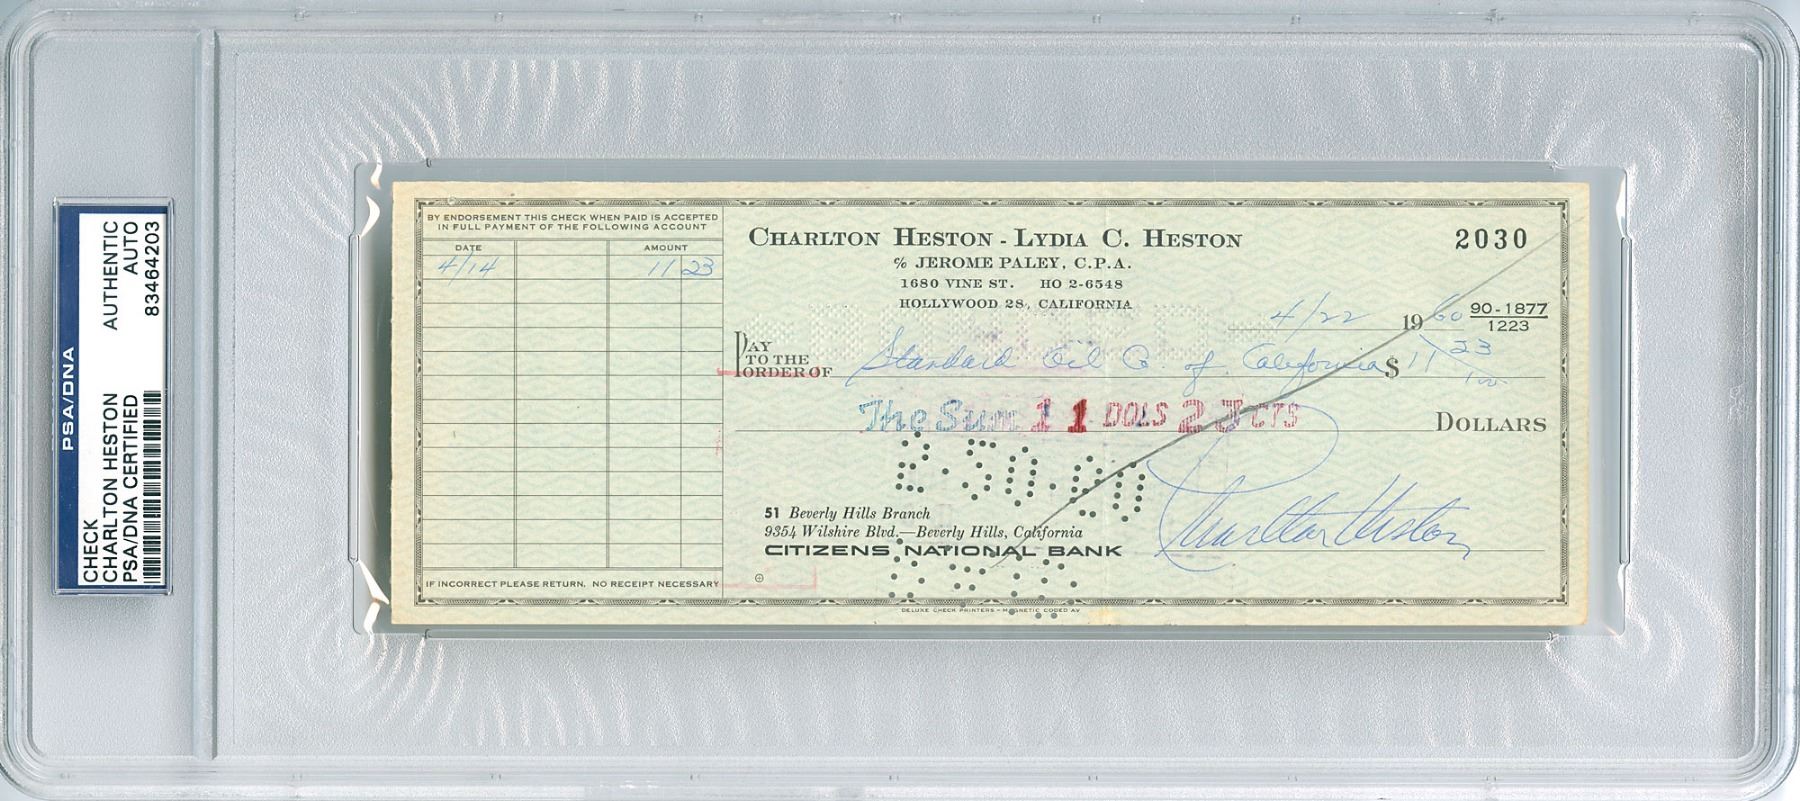 PSA/DNA
CHECK
CHARLTON HESTON
PSA/DNA CERTIFIED
AUTHENTIC
AUTO
83464203
BY ENDORSEMENT THIS CHECK WHEN PAID IS ACCEPTED
IN FULL PAYMENT OF THE FOLLOWING ACCOUNT
DATE AMOUNT
4/14 11 23
IF INCORRECT PLEASE RETURN. NO RECEIPT NECESSARY
CHARLTON HESTON - LYDIA C. HESTON
2030
% JEROME PALEY, C.P.A.
1680 VINE ST. HO 2-6548
HOLLYWOOD 28, CALIFORNIA
4/22 1960
90-1877
1223
PAY
TO THE
ORDER OF Standard Oil Co. of California $ 11 23/100
The Sum 11 DOLS 23 CTS DOLLARS
51 Beverly Hills Branch
9354 Wilshire Blvd.—Beverly Hills, California
CITIZENS NATIONAL BANK
Charlton Heston
DELUXE CHECK PRINTERS - MAGNETIC CODED AV